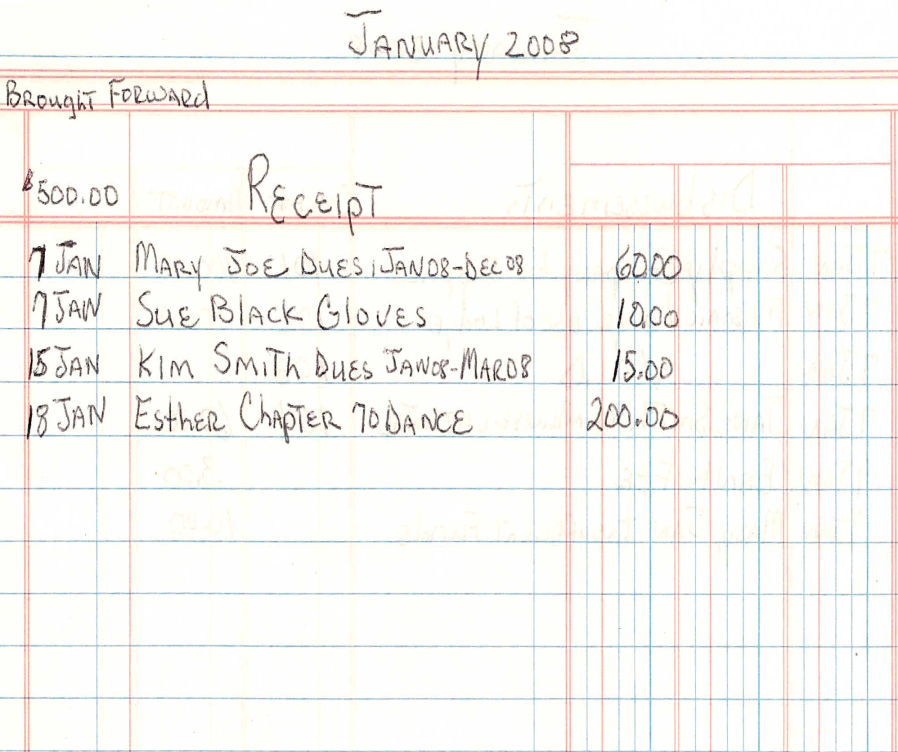 JANUARY 2008
BROUGHT FORWARD
$500.00 RECEIPT
7 JAN MARY JOE DUES, JAN08-DEC08 60.00
7 JAN SUE BLACK GLOVES 10.00
15 JAN KIM SMITH DUES JAN08-MAR08 15.00
18 JAN ESTHER CHAPTER 70 DANCE 200.00